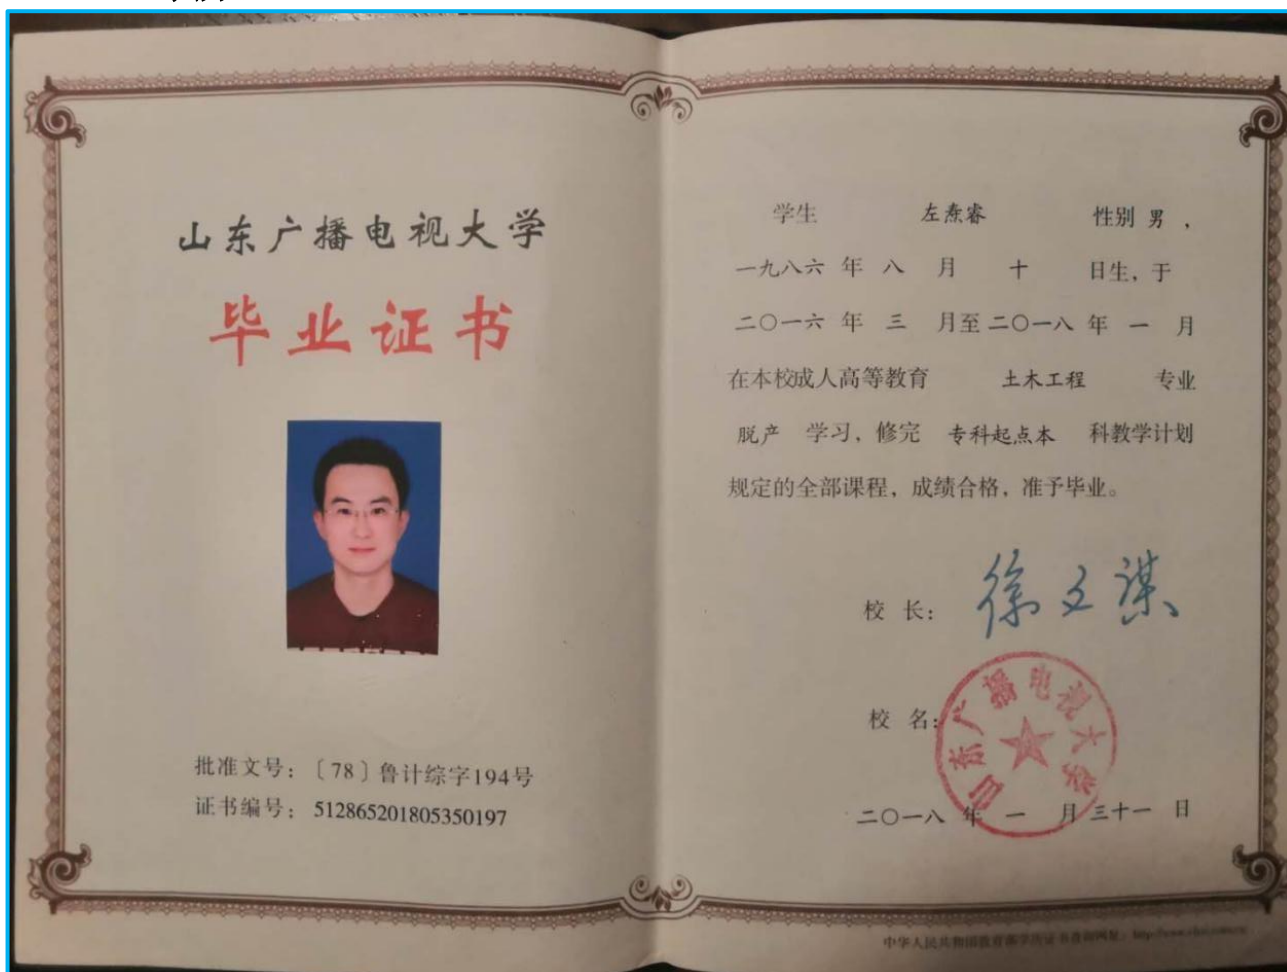 山东广播电视大学
毕业证书
批准文号：〔78〕鲁计综字194号
证书编号：512865201805350197
学生 左焘睿 性别 男，
一九八六 年 八 月 十 日生，于
二〇一六 年 三 月至 二〇一八 年 一 月
在本校成人高等教育 土木工程 专业
脱产 学习，修完 专科起点本 科教学计划
规定的全部课程，成绩合格，准予毕业。
校 长： 徐文谋
校 名：
山东广播电视大学
二〇一八 年 一 月 三十一 日
中华人民共和国教育部学历证书查询网址：